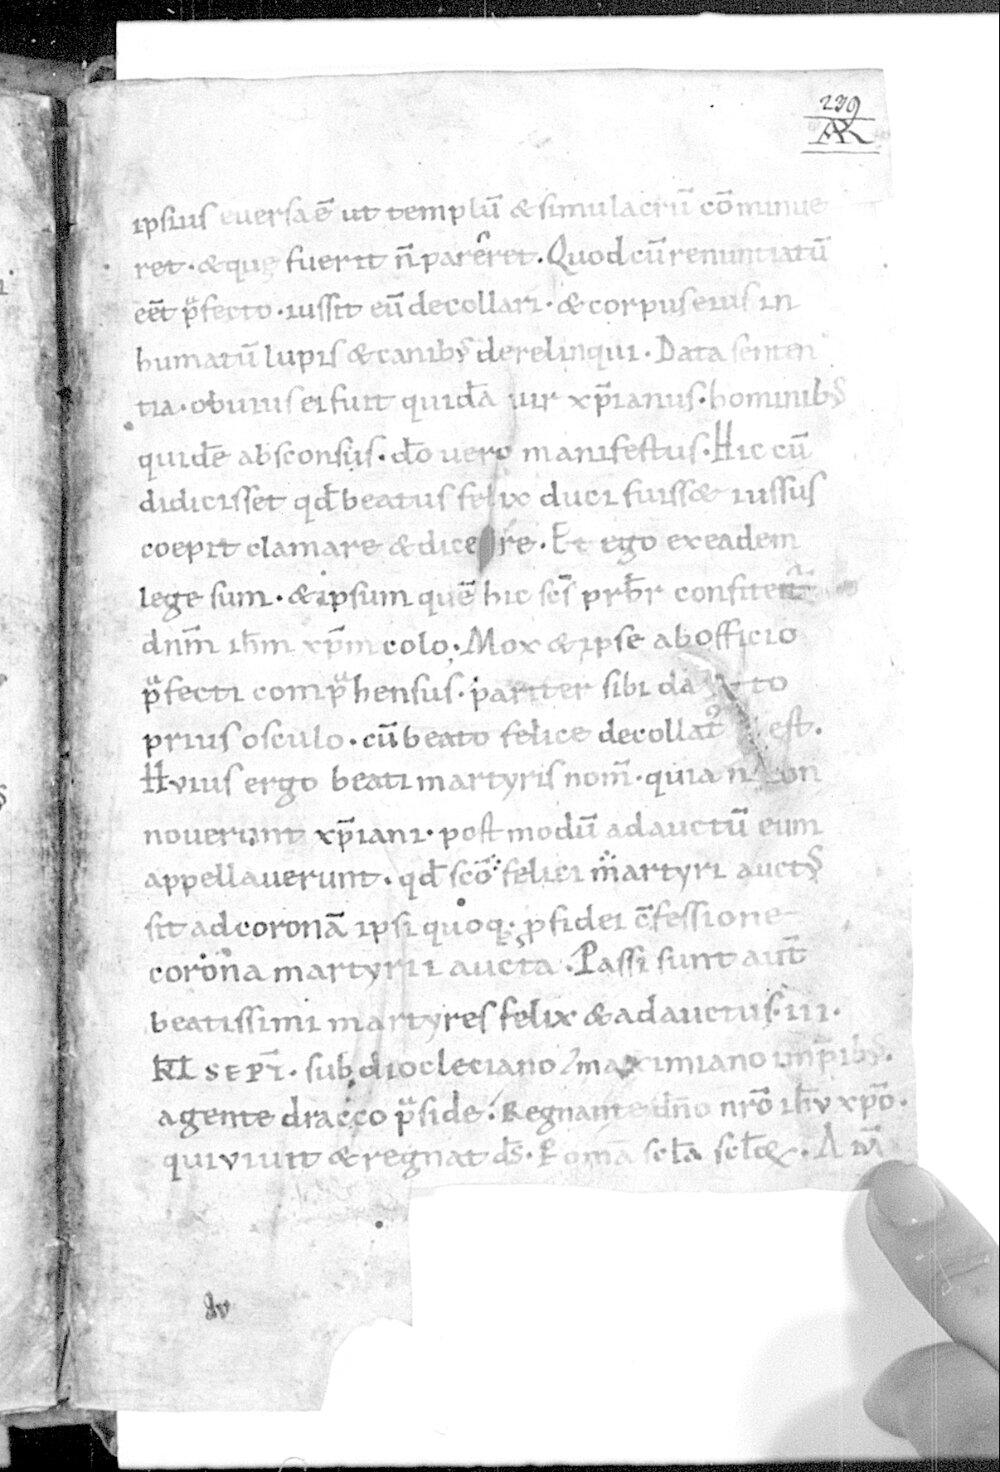 239
AR
ipsius euersa ē ut templū & simulacrū cōminue
ret · & que fuerit n̄ pareret · Quod cū renuntiatū
eēt p̄fecto · iussit eū decollari · & corpus eius in
humatū lupis & canibꝰ derelinqui · Data senten
tia · obuius ei fuit quidā uir xp̄ianus · hominibꝰ
quidē absconsus · dō uero manifestus · Hic cū
didicisset qd̄ beatus felix duci fuiss& iussus
coepit clamare & dicere · Et ego ex eadem
lege sum · & ipsum quē hic scs̄ prb̄r confitetur
dnm̄ ih̄m xp̄m colo · Mox & ipse ab officio
p̄fecti comp̄hensus · pariter sibi dato
prius osculo · cū beato felice decollatꝰ est ·
Huius ergo beati martyris nom̄ · quia non
nouerunt xp̄iani · post modū adauctū eum
appellauerunt · qd̄ scō felici martyri auctꝰ
sit ad coronā ipsi quoq; ꝓ fidei c̄fessione
corona martyrii aucta · Passi sunt aut̄
beatissimi martyres felix & adauctus · iii ·
Kl̄ sept̄ · sub diocleciano / maximiano imp̄ibꝰ ·
agente dracco p̄side · Regnante dn̄o nrō ih̄u xp̄o ·
qui uiuit & regnat ds̄ · P omā scl̄a scl̄oꝝ · Am̄